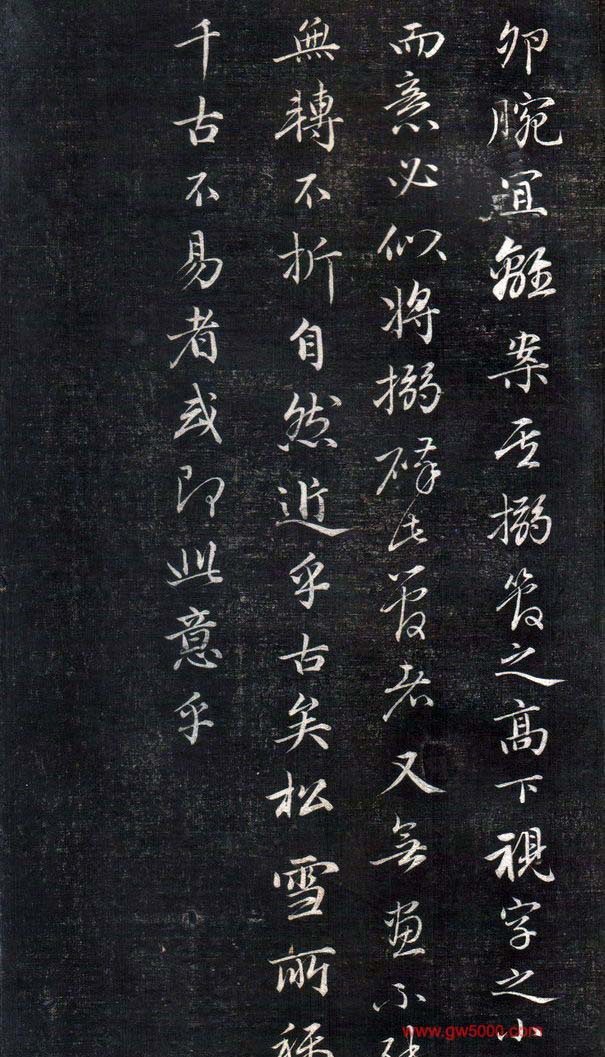 卯腕宜離案其搦管之高下視字之小
而意必似將搦碎此管者又無畫不
無轉不折自然近乎古矣松雪所稱
千古不易者或即此意乎
www.gw5000.com